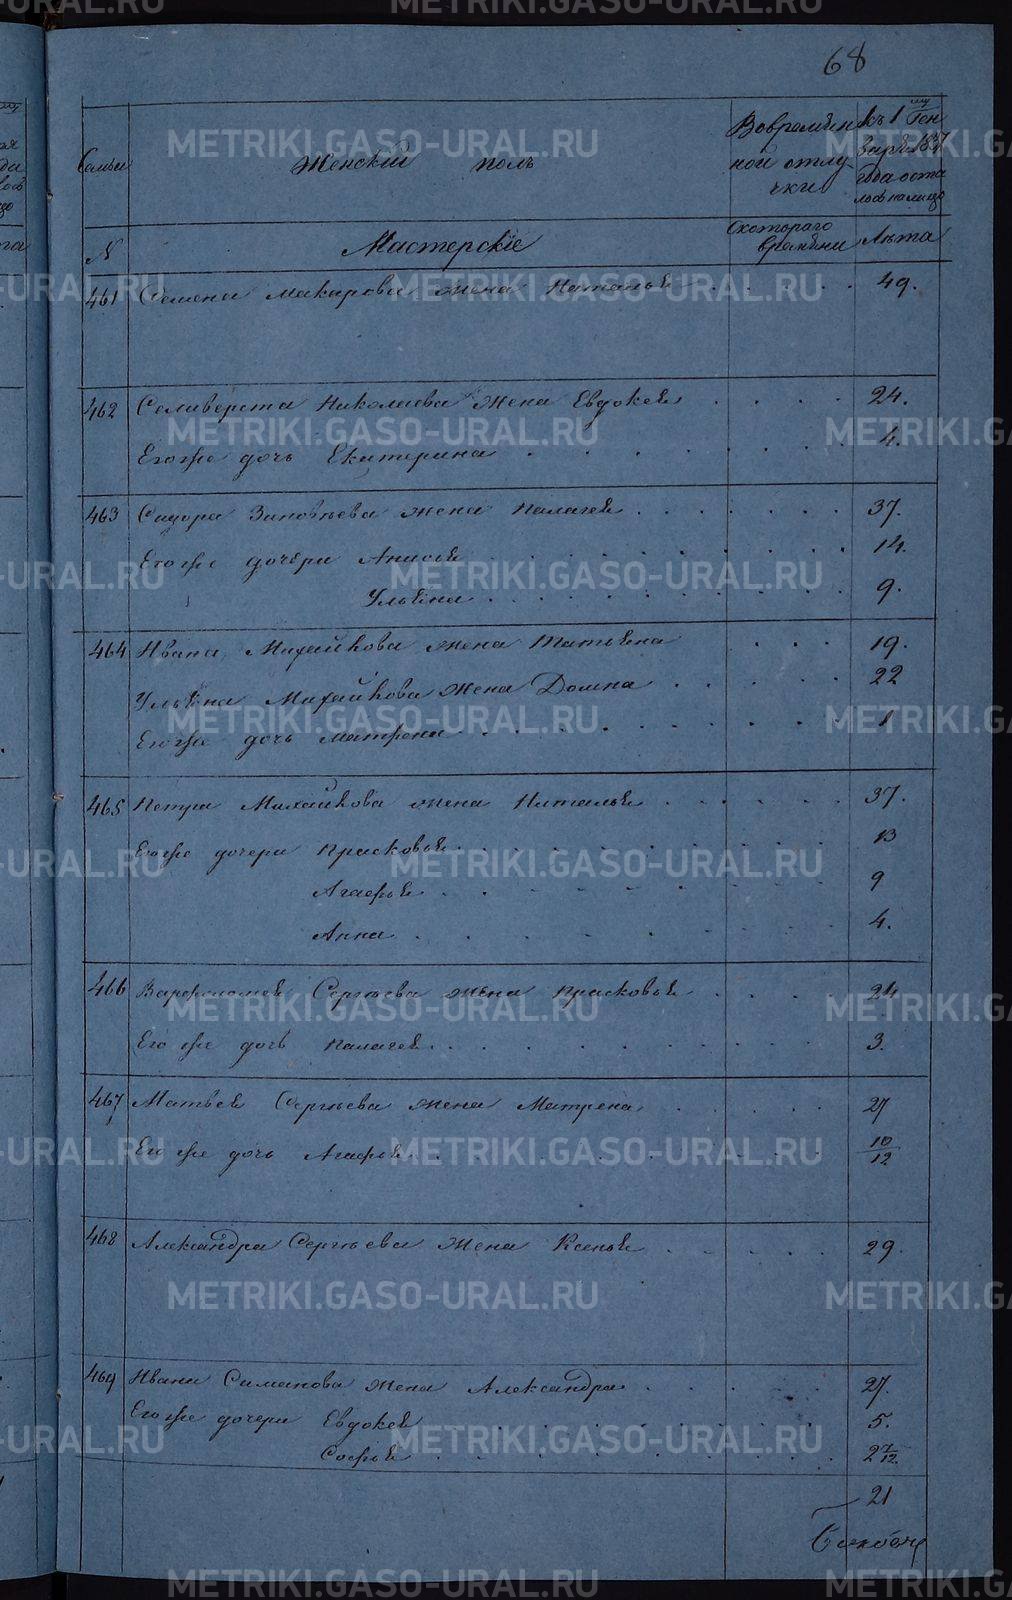 68
Семьи
Женскiй полъ
Во времен
ной отлу
чки
къ 1 му Ген
года оста
лось налицо
N
Мастерскiе
Скотораго
времени
Лѣта
461 Семена Макарова жена Наталья 49.
462 Селиверста Николаева жена Евдокея 24.
Егоже дочь Екатерина 4.
463 Сидора Зиновьева жена Палагея 37.
Егоже дочери Анисья 14.
Ульяна 9.
464 Ивана Михайлова жена Татьяна 19.
Ульяна Михайлова жена Домна 22
Егоже дочь Матрена 1
465 Петра Михайлова жена Наталья 37.
Егоже дочери Прасковья 13
Агафья 9
Анна 4.
466 Варфоломея Сергѣева жена Прасковья 24
Егоже дочь Палагея 3.
467 Матвея Сергѣева жена Матрена 27
Егоже дочь Агафья 10/12
468 Александра Сергѣева жена Ксенья 29.
469 Ивана Симанова жена Александра 27.
Егоже дочери Евдокея 5.
Софья 2 7/12
21
METRIKI.GASO-URAL.RU